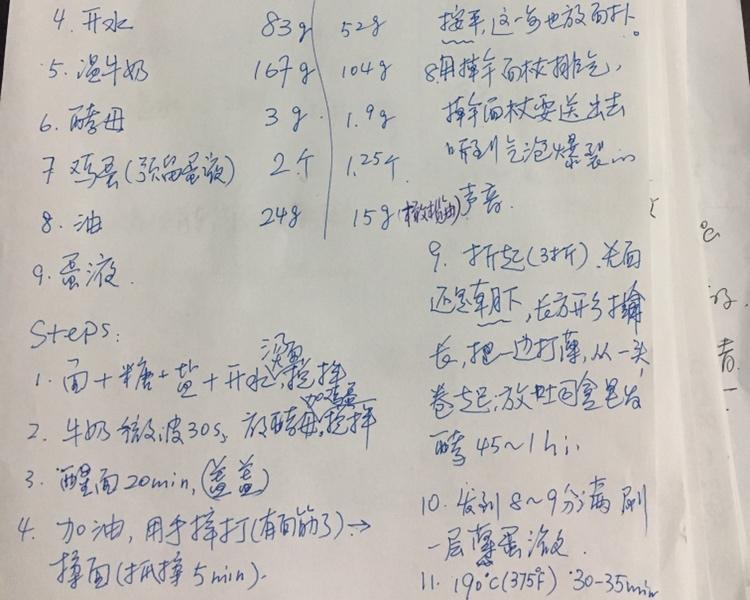 4. 开水 83g 52g
5. 温牛奶 167g 104g
6. 酵母 3g 1.9g
7 鸡蛋(预留蛋液) 2个 1.25个
8. 油 24g 15g(橄榄油)
9. 蛋液.
Steps:
1. 面+糖+盐+开水,搅拌
2. 牛奶微波30s, 放酵母,搅拌
加鸡蛋
3. 醒面20min,(盖盖)
4. 加油, 用手摔打(有面筋了)→
揉面(抓揉5min).
按平,这一步也放面扑。
8.用擀面杖排气,
擀面杖要送出去
听到气泡爆裂的
声音.
9. 折起(3折).光面
还是朝下,长方形擀
长,把一边打薄,从一头
卷起,放吐司盒里发
酵 45~1h.
10. 发到8~9分满刷
一层薄蛋液.
11. 190℃(375℉) 30-35min
℃